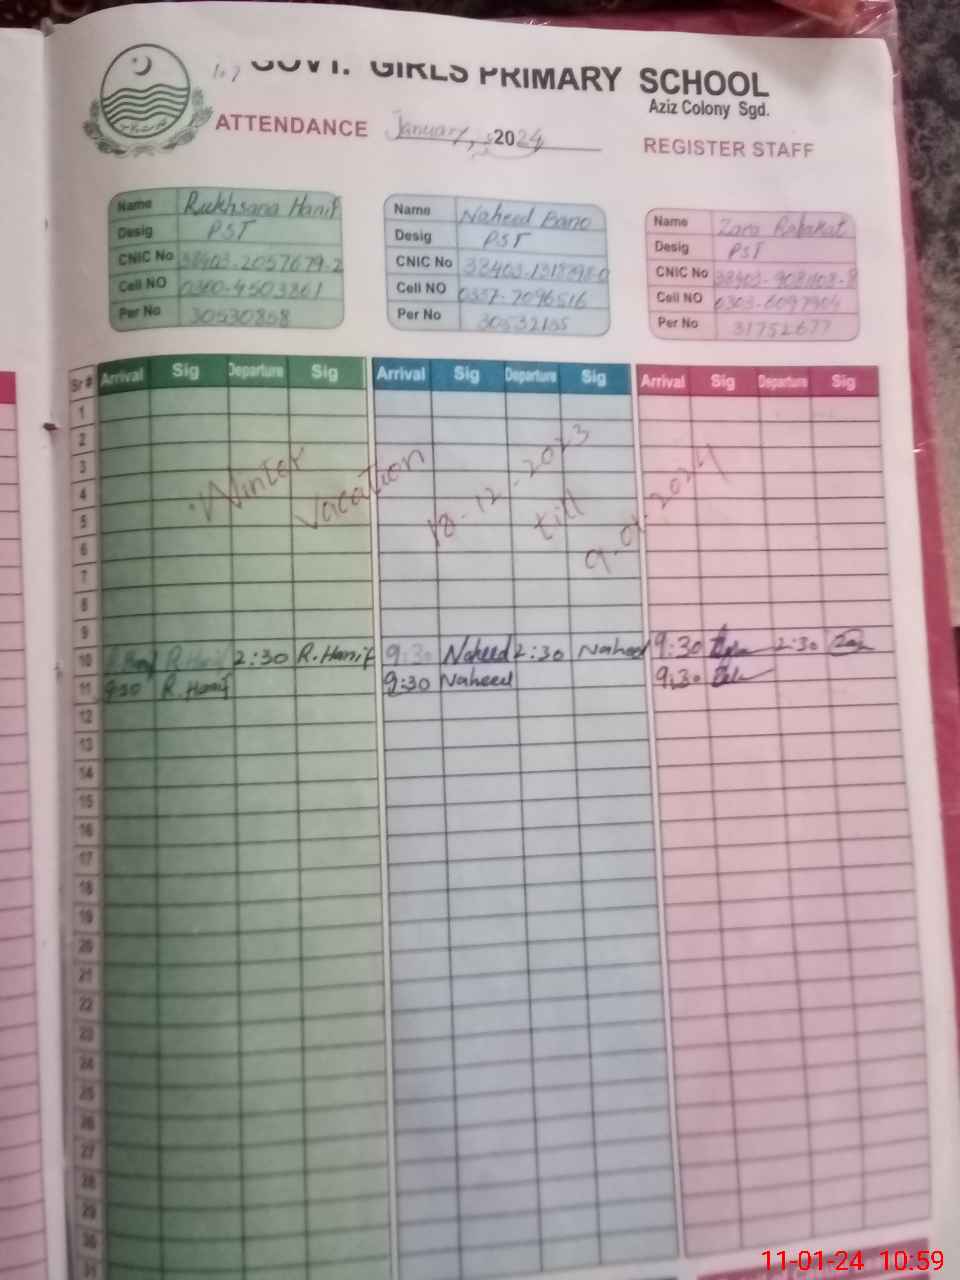 GOVT. GIRLS PRIMARY SCHOOL
Aziz Colony Sgd.
ATTENDANCE January, 2024 REGISTER STAFF
Name Rukhsana Hanif
Desig PST
CNIC No 38403-2057679-2
Cell NO
Per No 30530858
Name Naheed Bano
Desig PST
CNIC No
Cell NO
Per No
Name Zara
Desig PST
CNIC No
Cell NO
Per No 31752677
Sr # Arrival Sig Departure Sig Arrival Sig Departure Sig Arrival Sig Departure Sig
1
2
3
4
5
6
7
8
9
Winter Vacation 18-12-2023 till 9-01-2024
10 R. Hanif 2:30 R.Hanif 9:30 Naheed 2:30 Naheed 9:30 2:30
11 9:30 R. Hanif 9:30 Naheed 9:30
12
13
14
15
16
17
18
19
20
21
22
23
24
25
26
27
28
29
30
31
11-01-24 10:59